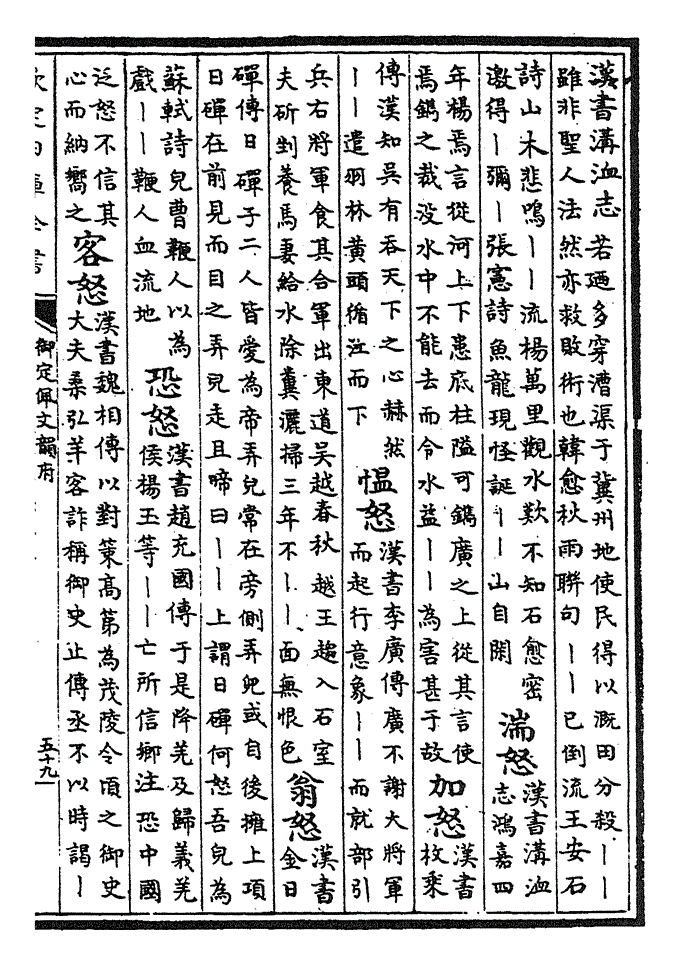 漢書溝洫志若廼多穿漕渠于冀州地使民得以溉田分殺丨丨
雖非聖人法然亦救敗術也韓愈秋雨聯句丨丨已倒流王安石
詩山木悲鳴丨丨流楊萬里觀水歎不知石愈密
激得丨彌丨張憲詩魚龍現怪誕丨丨山自閑
湍怒
漢書溝洫
志鴻嘉四
年楊焉言從河上下患底柱隘可鐫廣之上從其言使
焉鐫之裁没水中不能去而令水益丨丨為害甚于故
加怒
漢書
枚乘
傳漢知吳有吞天下之心赫然
丨丨遣羽林黄頭循江而下
愠怒
漢書李廣傳廣不謝大將軍
而起行意象丨丨而就部引
兵右將軍食其合軍出東道吳越春秋越王趨入石室
夫斫剉養馬妻給水除糞灑掃三年不丨丨面無恨色
翁怒
漢書
金日
磾傳日磾子二人皆愛為帝弄兒常在旁側弄兒或自後擁上項
日磾在前見而目之弄兒走且啼曰丨丨上謂日磾何怒吾兒為
蘇軾詩兒曹鞭人以為
戲丨丨鞭人血流地
恐怒
漢書趙充國傳于是降羌及歸義羌
侯楊玉等丨丨亡所信鄉注恐中國
泛怒不信其
心而納嚮之
客怒
漢書魏相傳以對策高第為茂陵令頃之御史
大夫桑弘羊客詐稱御史止傳丞不以時謁丨
欽定四庫全書
御定佩文韻府
五十九